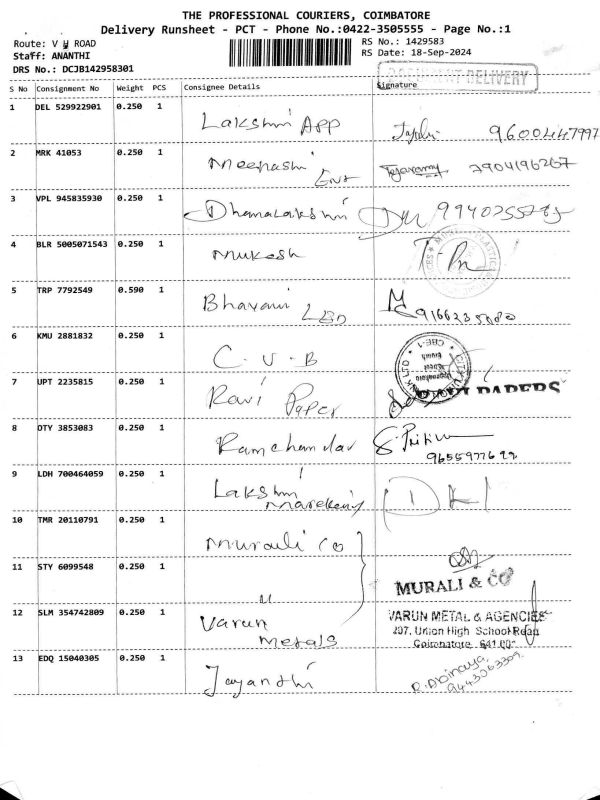 THE PROFESSIONAL COURIERS, COIMBATORE
Delivery Runsheet - PCT - Phone No.:0422-3505555 - Page No.:1
Route: V H ROAD
RS No.: 1429583
Staff: ANANTHI
RS Date: 18-Sep-2024
DRS No.: DCJB142958301
DELIVERY
S No Consignment No Weight PCS Consignee Details Signature
1 DEL 529922901 0.250 1 Lakshmi App 9600447997
2 MRK 41053 0.250 1 Meenashi Ent 7904196267
3 VPL 945835930 0.250 1 Dhanalakshmi
4 BLR 5005071543 0.250 1 Mukesh
5 TRP 7792549 0.590 1 Bhavani LED
6 KMU 2881832 0.250 1 C.U.B
7 UPT 2235815 0.250 1 Ravi Paper RAVI PAPERS
8 OTY 3853083 0.250 1 Ramchandar
9 LDH 700464059 0.250 1 Lakshmi
10 TMR 20110791 0.250 1 Murali Co
11 STY 6099548 0.250 1 " MURALI & CO
12 SLM 354742809 0.250 1 Varun Metals VARUN METAL & AGENCIES
207, Union High School Road
Coimbatore
13 EDQ 15040305 0.250 1 Jayanthi R. Abinaya
9443063309